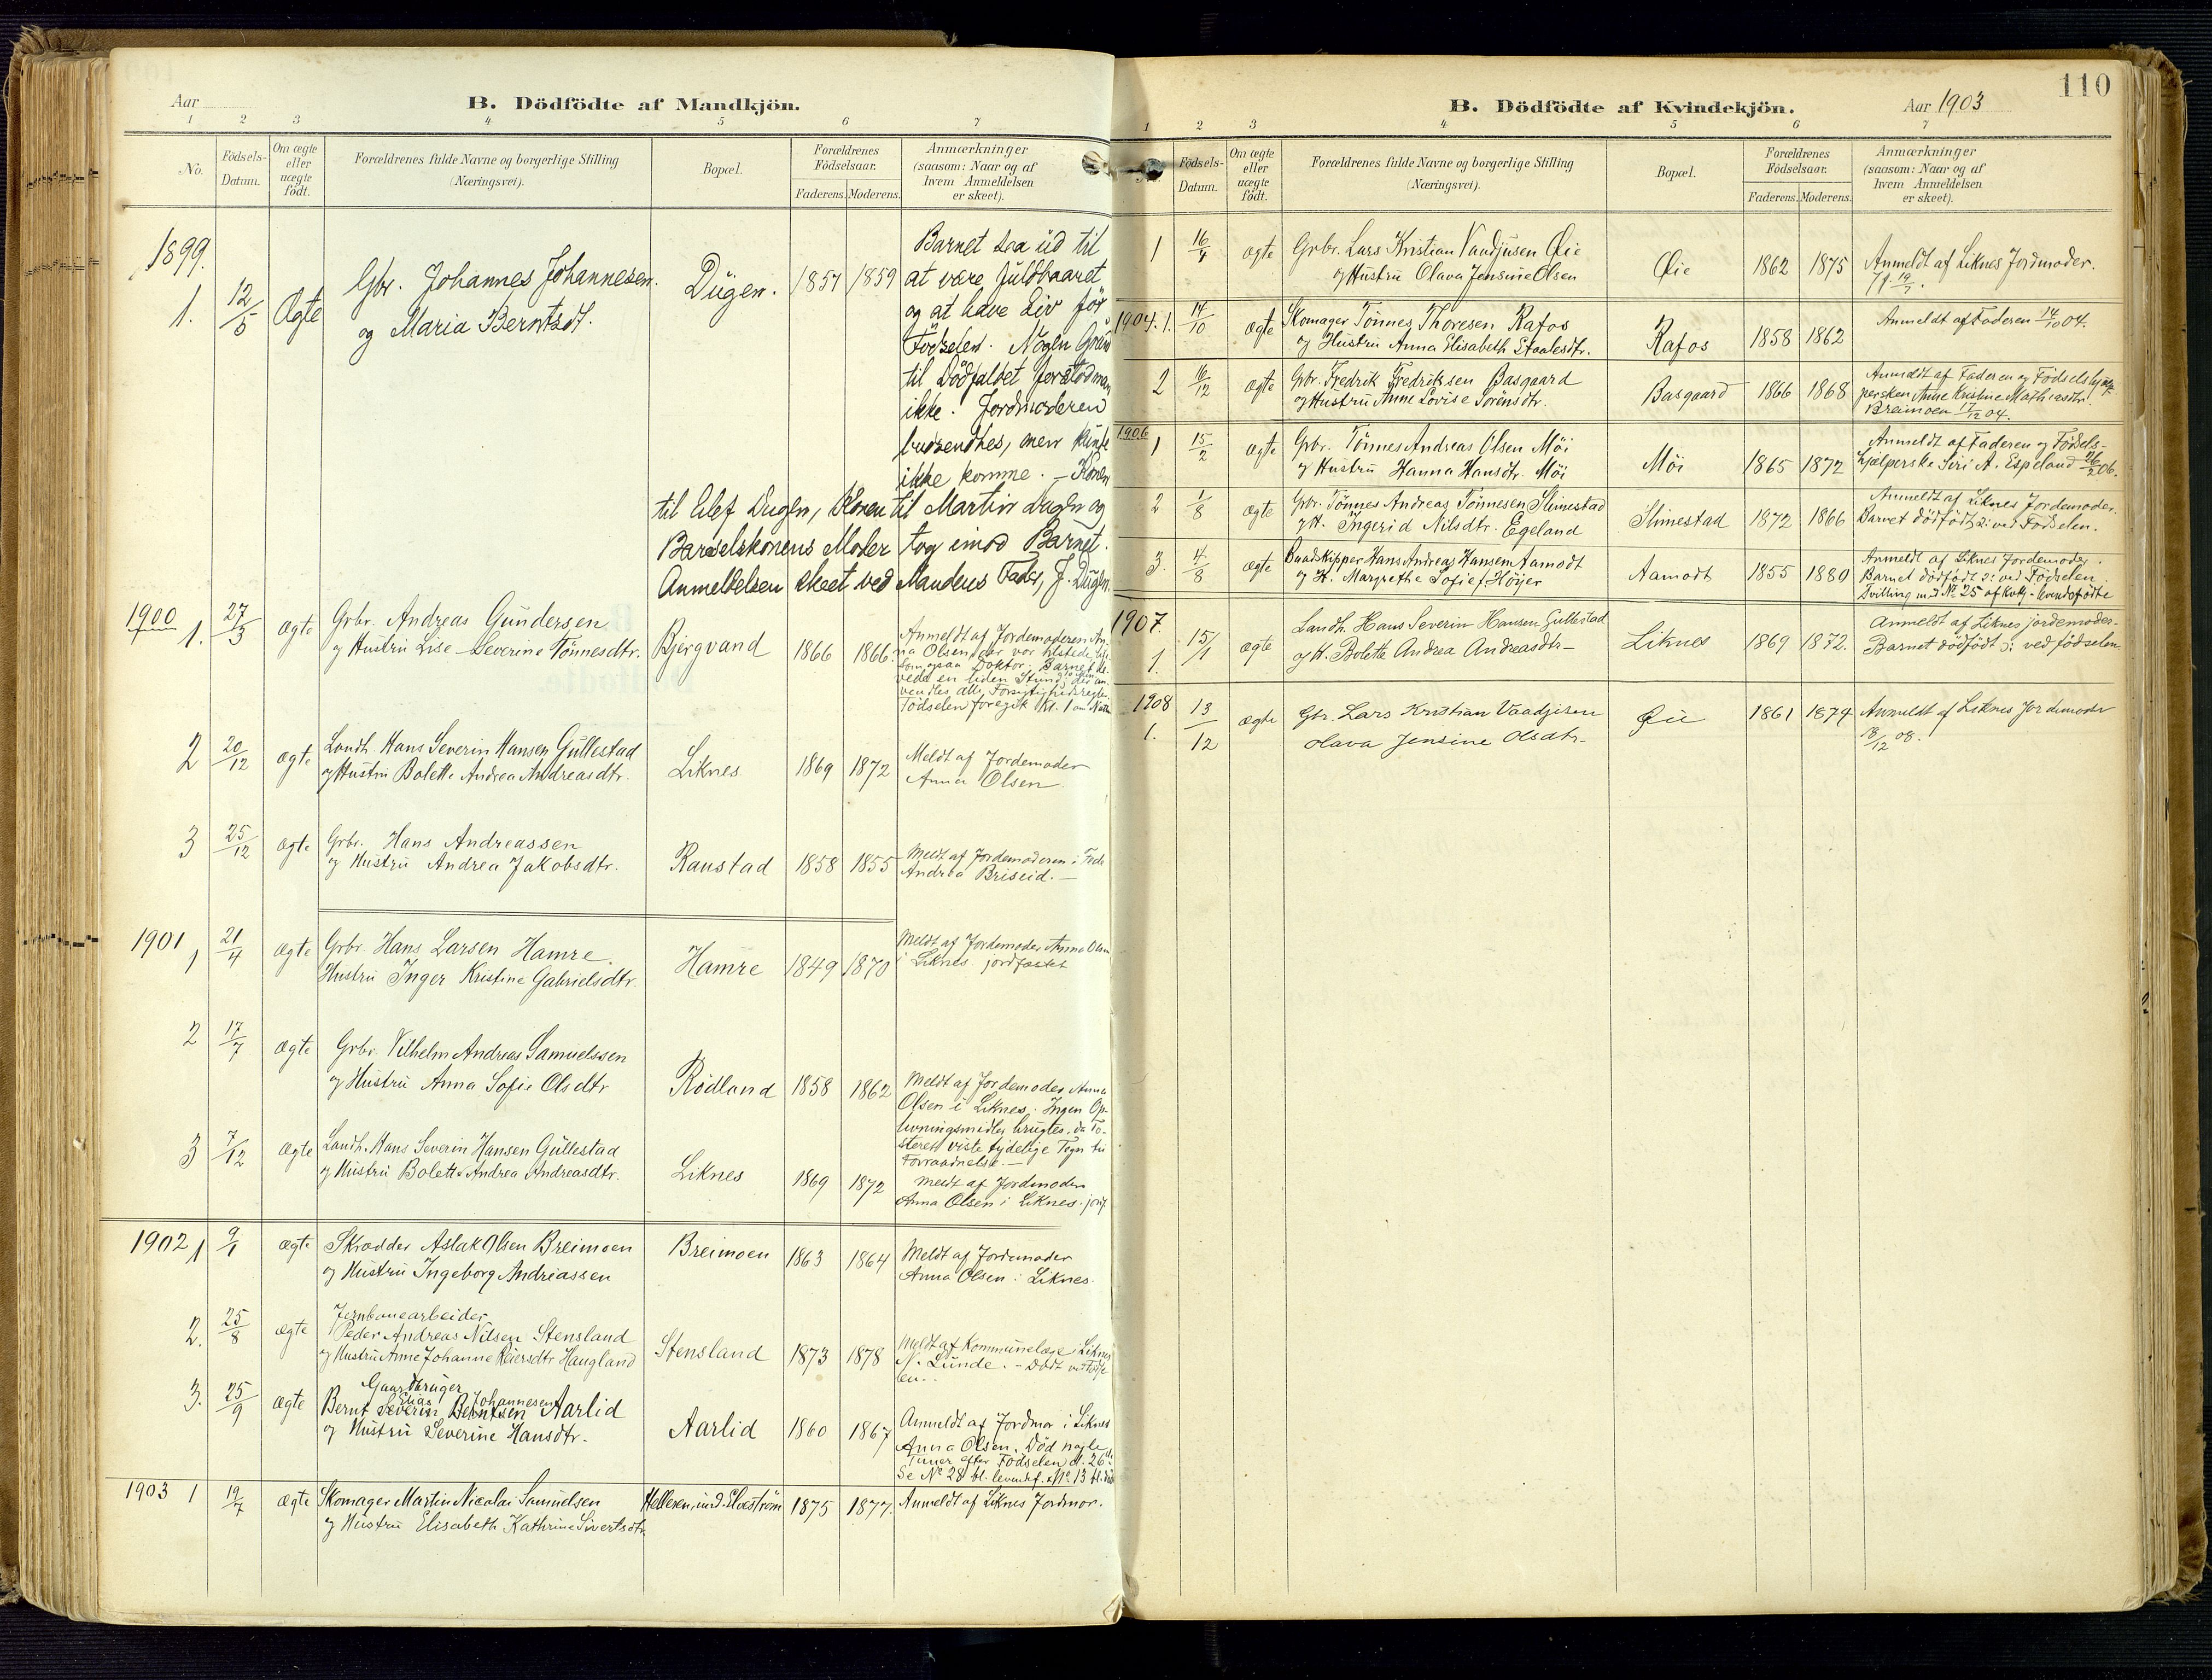 Aar
B. Dödfödte af Mandkjön.
1 2 3 4 5 6 7
No.
Födsels-Datum.
Om ægte eller uægte födt.
Forældrenes fulde Navne og borgerlige Stilling (Næringsvei).
Bopæl.
Forældrenes Födselsaar.
Faderens. Moderens.
Anmærkninger (saasom: Naar og af hvem Anmeldelsen er skeet).
1899.
1. 12/5 Ægte Gbr. Johannes Johannesen Dugen. 1857 1859
og Maria Berntsdt.
Barnet saa ud til
at være fuldbaaret
og at have Liv før
Fødselen. Nogen Grund
til Dødfaldet forstod man
ikke. Jordmoderen
budsendtes, men kunde
ikke komme. – Konen
til Elef Dugen, Konen til Martin Dugen og
Barselskonens Moder tog imod Barnet.
Anmeldelsen skeet ved Mandens Fader, J. Dugen.
1900 1. 27/3 ægte Grbr. Andreas Gundersen
og Hustru Lise-Severine Tønnesdtr. Bjergvand 1866 1866
Anmeldt af Jordemoderen An-
na Olsen, der var tilstede lige-
som ogsaa Doktor. Barnet le-
vede en liden Stund, der an-
vendtes alle Forsigtighedsregler.
Fødselen foregik Kl. 1 om Natten
2 20/12 ægte Landh. Hans Severin Hansen Gullestad
og Hustru Bolette Andrea Andreasdtr. Liknes 1869 1872
Meldt af Jordemoder
Anna Olsen
3 25/12 ægte Grbr. Hans Andreassen
og Hustru Andrea Jakobsdtr. Raustad 1858 1855
Meldt af Jordemoderen i Feda
Andrea Briseid. –
1901 1 21/4 ægte Grbr. Hans Larsen Hamre.
Hustru Inger Kristine Gabrielsdtr. Hamre 1849 1870
Meldt af Jordemoder Anna Olsen
i Liknes. jordfæstet
2 17/7 ægte Grbr. Vilhelm Andreas Samuelssen
og Hustru Anna Sofie Olsdtr Rødland 1858 1862
Meldt af Jordemoder Anna
Olsen i Liknes. Ingen Op-
livningsmidler brugtes, da Fo-
steret viste tydelige Tegn til
Forraadnelse. –
3 7/12 ægte Landh. Hans Severin Hansen Gullestad
og Hustru Bolette Andrea Andreasdtr. Liknes 1869 1872
Meldt af Jordmoder
Anna Olsen i Liknes. jordf.
1902 1 9/1 ægte Skrædder Aslak Olsen Breimoen
og Hustru Ingeborg Andreassen Breimoen 1863 1864
Meldt af Jordemoder
Anna Olsen i Liknes.
2. 25/8 ægte Jernbanearbeider
Peder Andreas Nilsen Stensland
og Hustru Anne Johanne Reiersdtr Haugland Stensland 1873 1878
Meldt af Kommunelæge i Liknes
N. Lunde. – Dødt ved Føds-
len. –
3. 25/9 ægte Gaardbruger
Elias Johannesen
Bernt Severin Berntsen Aarlid
og Hustru Severine Hansdtr. Aarlid 1860 1867
Anmeldt af Jordmor i Liknes
Anna Olsen. Død nogle
Timer efter Fødselen d. 26de
Se No 28 bl. levendef. & No 13 bl. døde
1903 1 19/7 ægte Skomager Martin Nicolai Samuelsen
og Hustru Elisabeth Kathrine Sivertsdtr Helleren, und. Elvestrøm 1875 1877.
Anmeldt af Liknes Jordmor.
110
B. Dödfödte af Kvindekjön.
Aar 1903
1 2 3 4 5 6 7
Födsels-Datum.
Om ægte eller uægte födt.
Forældrenes fulde Navne og borgerlige Stilling (Næringsvei).
Bopæl.
Forældrenes Födselsaar.
Faderens. Moderens.
Anmærkninger (saasom: Naar og af hvem Anmeldelsen er skeet).
1 16/4 ægte Grbr. Lars Kristian Vaadjusen Øie
og Hustru Olava Jensine Olsen Øie 1862 1875
Anmeldt af Liknes Jordmoder.
1904. 1. 14/10 ægte Skomager Tønnes Thoresen Rafos
og Hustru Anna Elisabeth Staalesdtr. Rafos 1858 1862
Anmeldt af Faderen 14/10 04.
2 16/12 ægte Grbr. Fredrik Fredriksen Basgaard
og Hustru Anne Lovise Sørensdtr. Basgaard 1866 1868
Anmeldt af Faderen og Fødselshjæl-
persken Anne Kristine Mathiasdtr
Breimoen 17/12 04.
1906 1 15/2 ægte Grbr. Tønnes Andreas Olsen Møi
og Hustru Hanna Hansdtr. Møi Møi 1865 1872
Anmeldt af Faderen og Fødsels-
hjælperske Siri A. Espeland 26/2 06.
2 1/8 ægte Grbr. Tønnes Andreas Tønnesen Slimestad
og H. Ingerid Nilsdtr. Egeland Slimestad 1872 1866
Anmeldt af Liknes Jordemoder.
Barnet dödfödt ɔ: ved Fødselen.
3. 4/8 ægte Baadskipper Hans Andreas Hansen Aamodt
og H. Margrethe Sofie f. Höyer Aamodt 1855 1880
Anmeldt af Liknes Jordemoder.
Barnet dödfödt ɔ: ved Fødselen
Tvilling med No 25 af Kvkj. levendefödte
1907. 1. 15/1 ægte Landh. Hans Severin Hansen Gullestad
og H. Bolette Andrea Andreasdtr – Liknes 1869 1872.
Anmeldt af Liknes jordemoder.
Barnet dödfödt ɔ: ved födselen
1908 1. 13/12 ægte Gbr. Lars Kristian Vaadjesen
Olava Jensine Olsdtr. Øie 1861 1874
Anmeldt af Liknes Jordemoder
18/12 08.